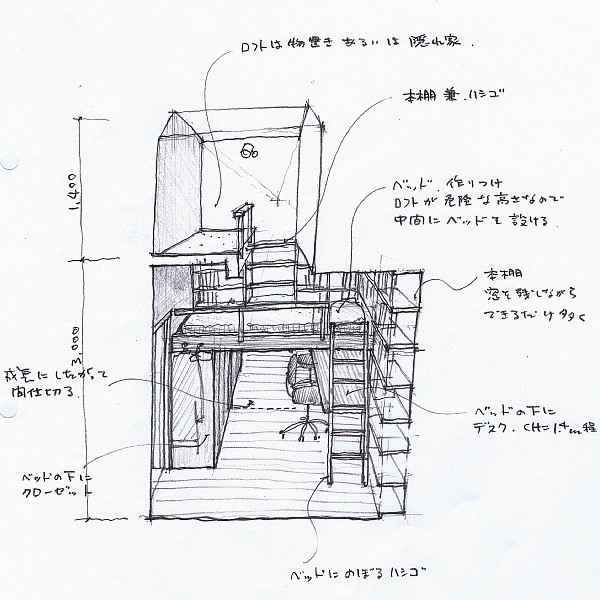 ロフトは物置きあるいは隠れ家.
本棚兼ハシゴ
ベッド.作りつけ
ロフトが危険な高さなので
中間にベッドを設ける
本棚
窓を残しながら
できるだけ多く
1,400
3,000
成長にしたがって
間仕切る
ベッドの下に
デスク. CH=1.4m程
ベッドの下に
クローゼット
ベッドにのぼるハシゴ